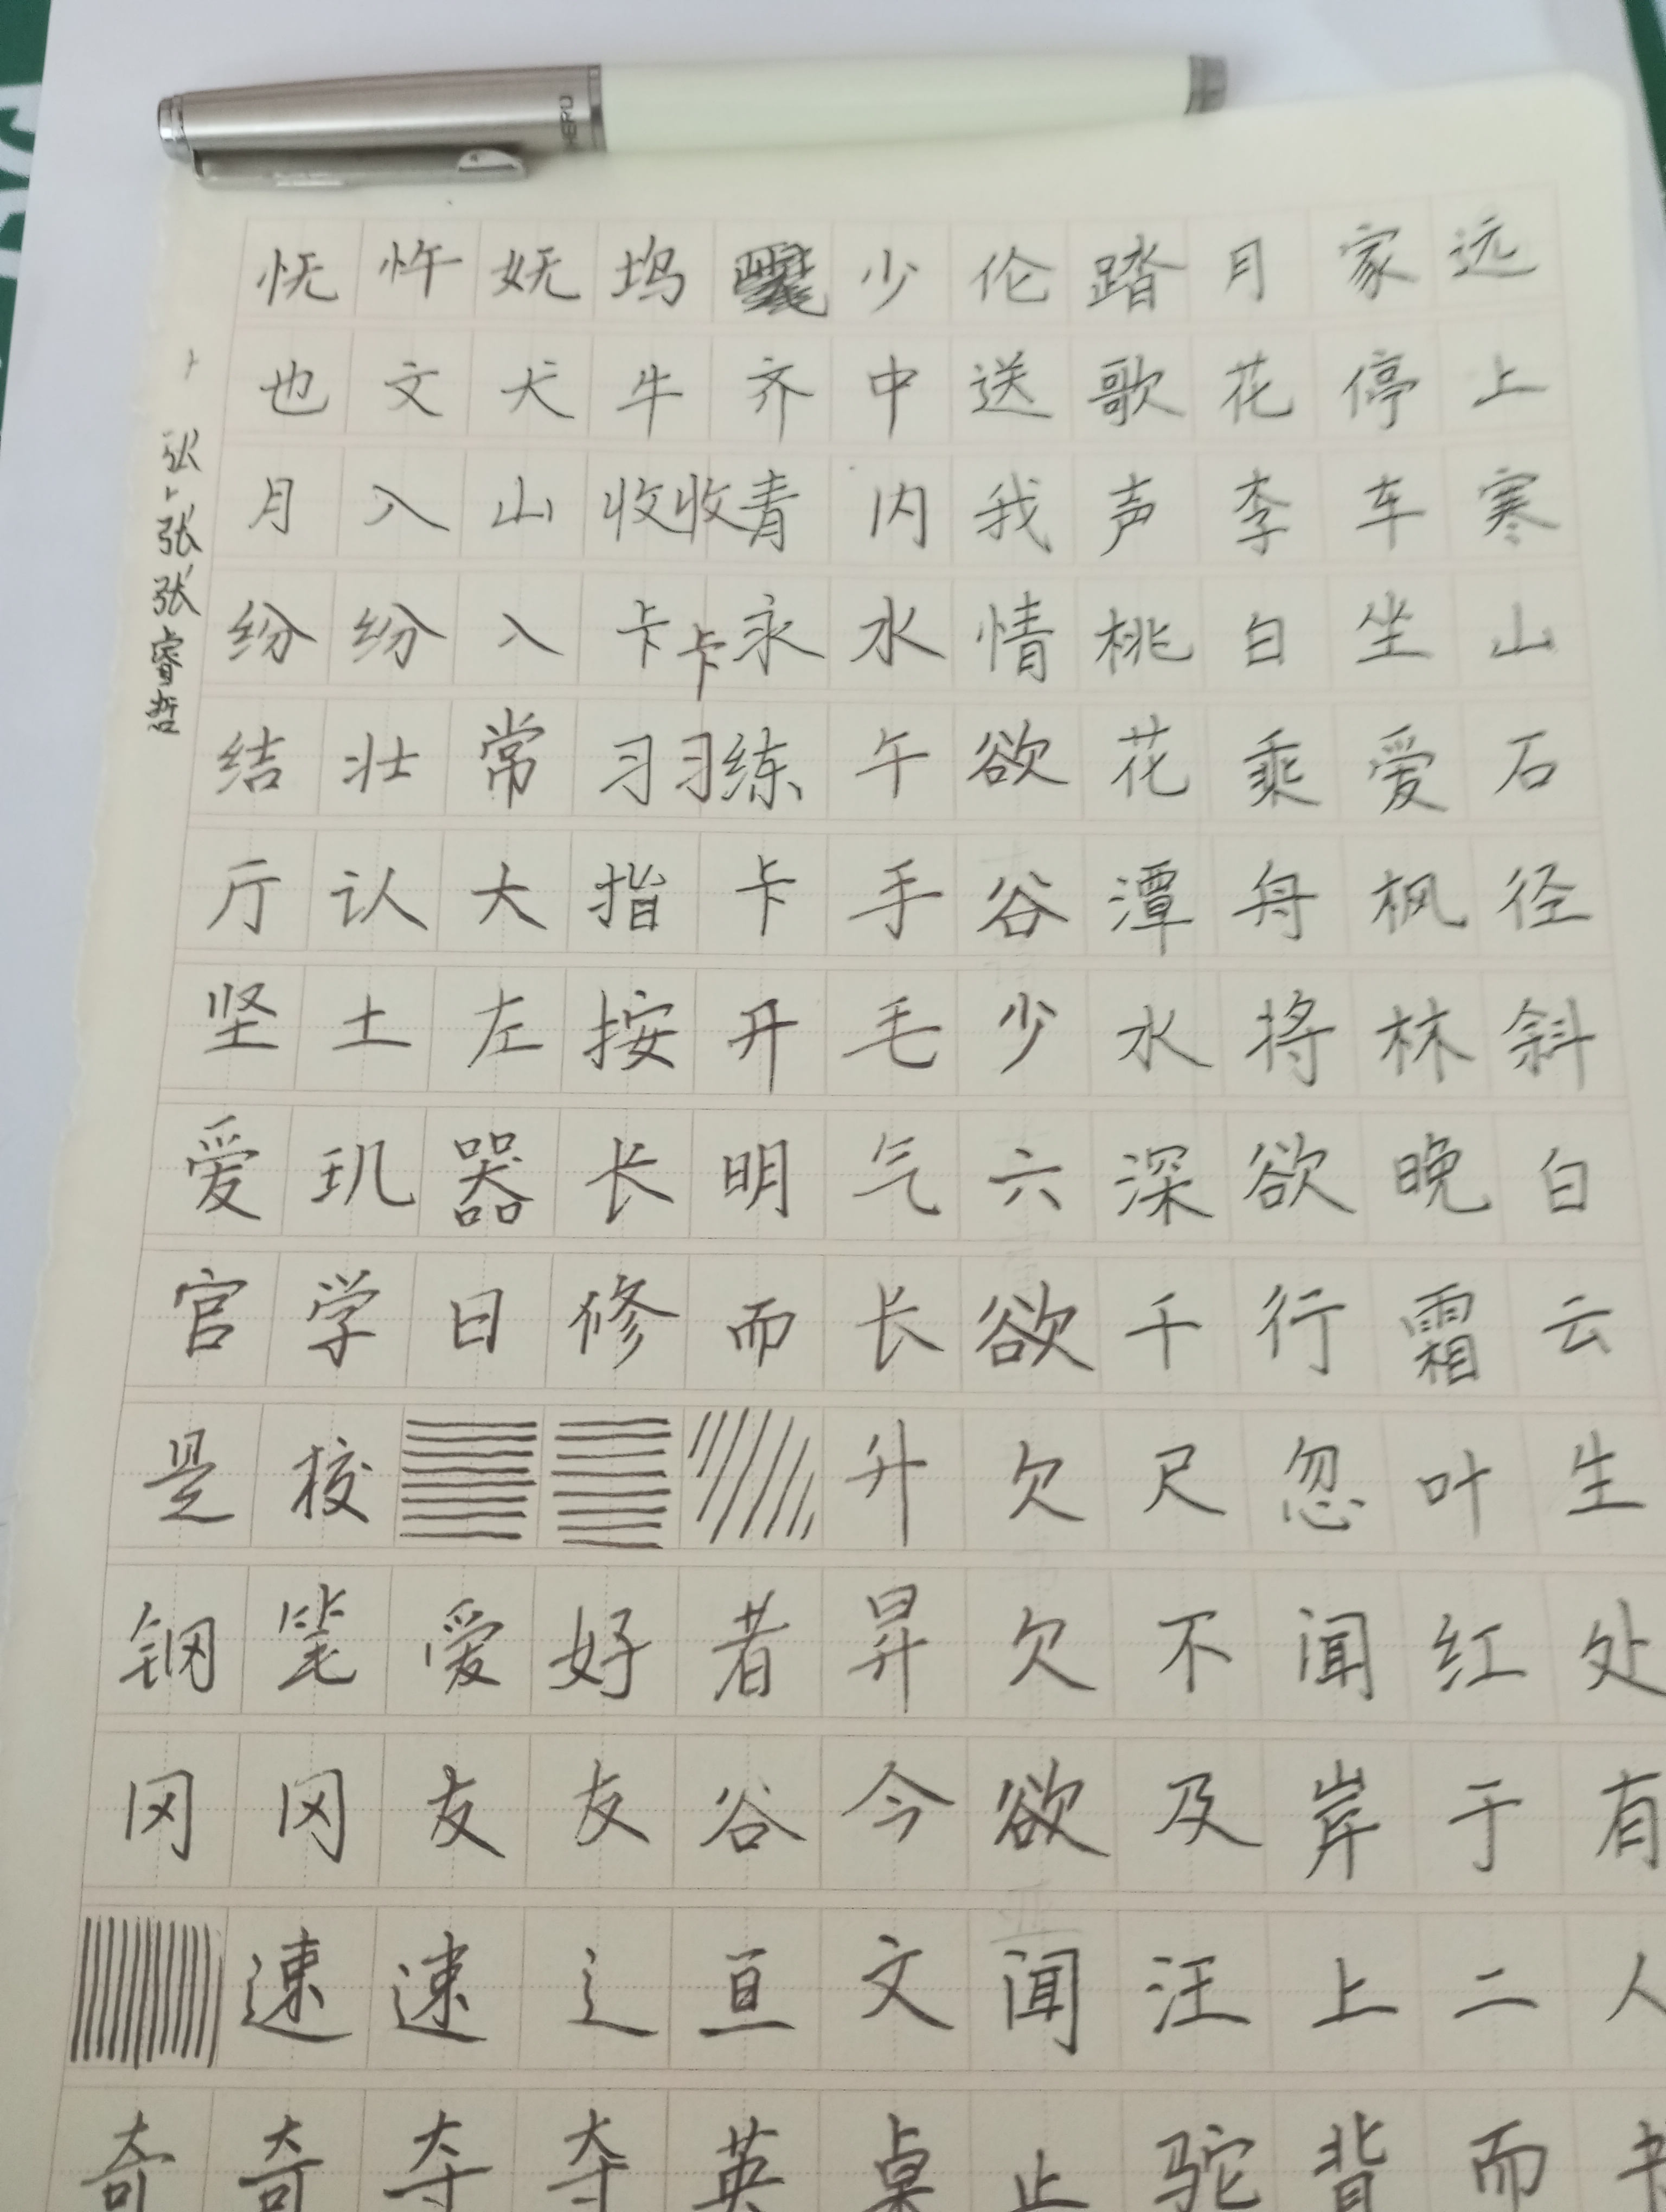 HERO
远上寒山石径斜白云生处有人
家停车坐爱枫林晚霜叶红于二而
月花李白乘舟将欲行忽闻岸上背
踏歌声桃花潭水深千尺不及汪驼
伦送我情欲谷少六欲欠欠欲闻止
少中内水午手毛气长升昇今文桌
齐青永练卡开明而者谷亘英
收卡习
坞牛收卡习指按长修好友辶夺
妩犬山入常大左器日爱友速夺
忤文入纷壮认土玑学校笔冈速奇
怃也月纷结厅坚爱官是钢冈奇
张张张睿哲